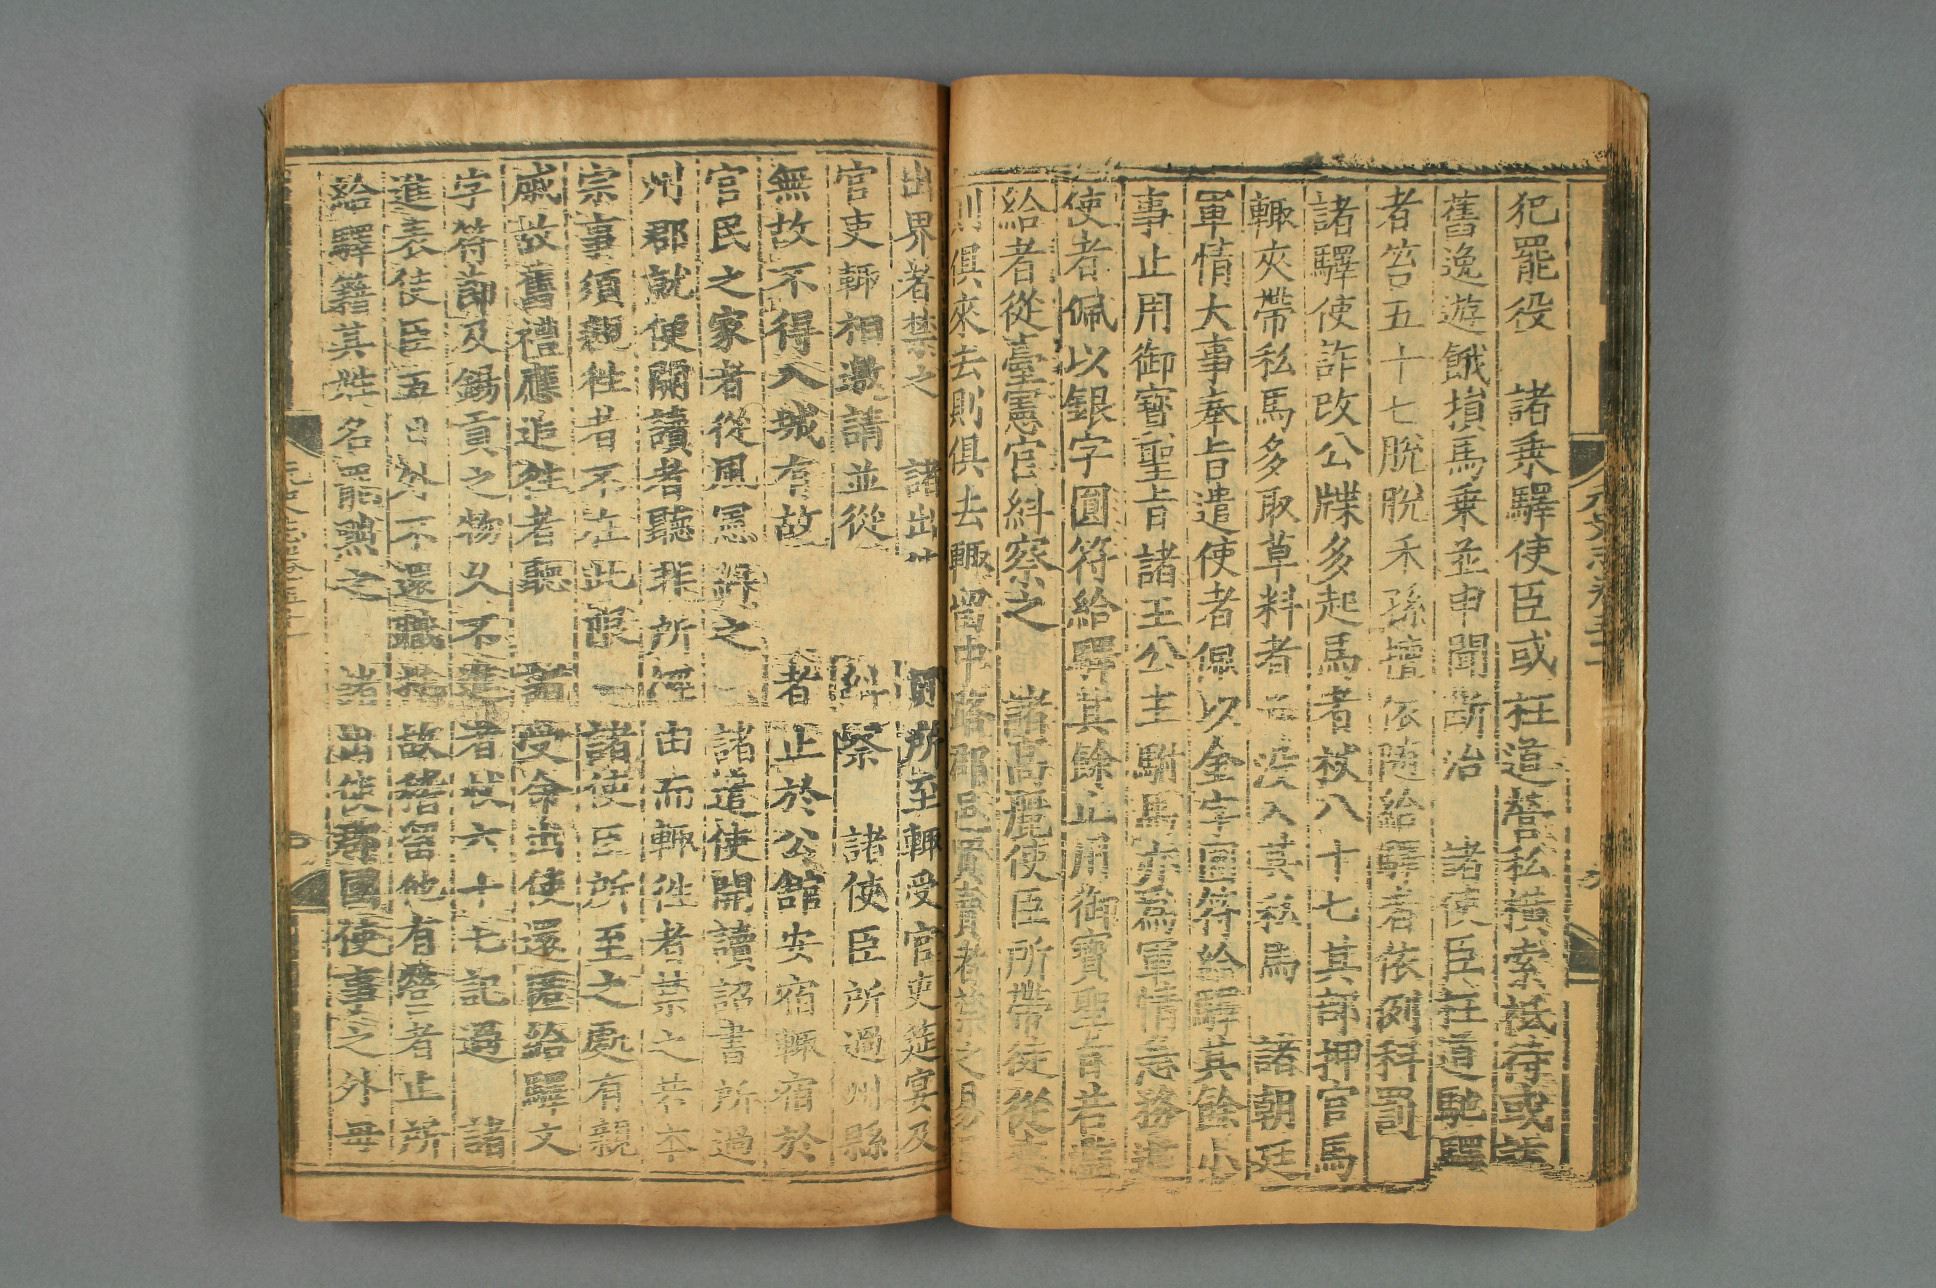 犯罷役　諸乗驛使臣或枉道營私橫索祗待或訪
舊逸遊餓損馬乗並申聞斷治　諸使臣枉道馳驛
者笞五十七脫脫禾孫擅依隨給驛者依例科罰
諸驛使詐改公牒多起馬者杖八十七其部押官馬
輙夾帶私馬多取草料者　没入其私馬　諸朝廷
軍情大事奉旨遣使者佩以金字圓符給驛其餘小
事止用御寶聖旨諸王公主駙馬亦為軍情急務遣
使者佩以銀字圓符給驛其餘止用御寶聖旨若濫
給者從臺憲官糾察之　諸高麗使臣所帶徒從來
則俱來去則俱去輙留中路郡邑買賣者禁之易
出界者禁之　諸出　所至輙受官吏筵宴及
官吏輙相邀請並從　糾察　諸使臣所過州縣
無故不得入城有故　者止於公館安宿輙宿於
官民之家者從風憲　糾之　諸遣使開讀詔書所過
州郡就便開讀者聽非所經由而輙往者禁之其本
宗事須親往者不在此限　諸使臣所至之處有親
戚故舊禮應追往者聽　諸受命出使還匿給驛文
字符節及錫貢之物久不進者杖六十七記過　諸
進表使臣五日外不還職者　故稽留他有營者止所
給驛籍其姓名罷黜之　諸出使郡國使事之外毋
元史志卷五十一